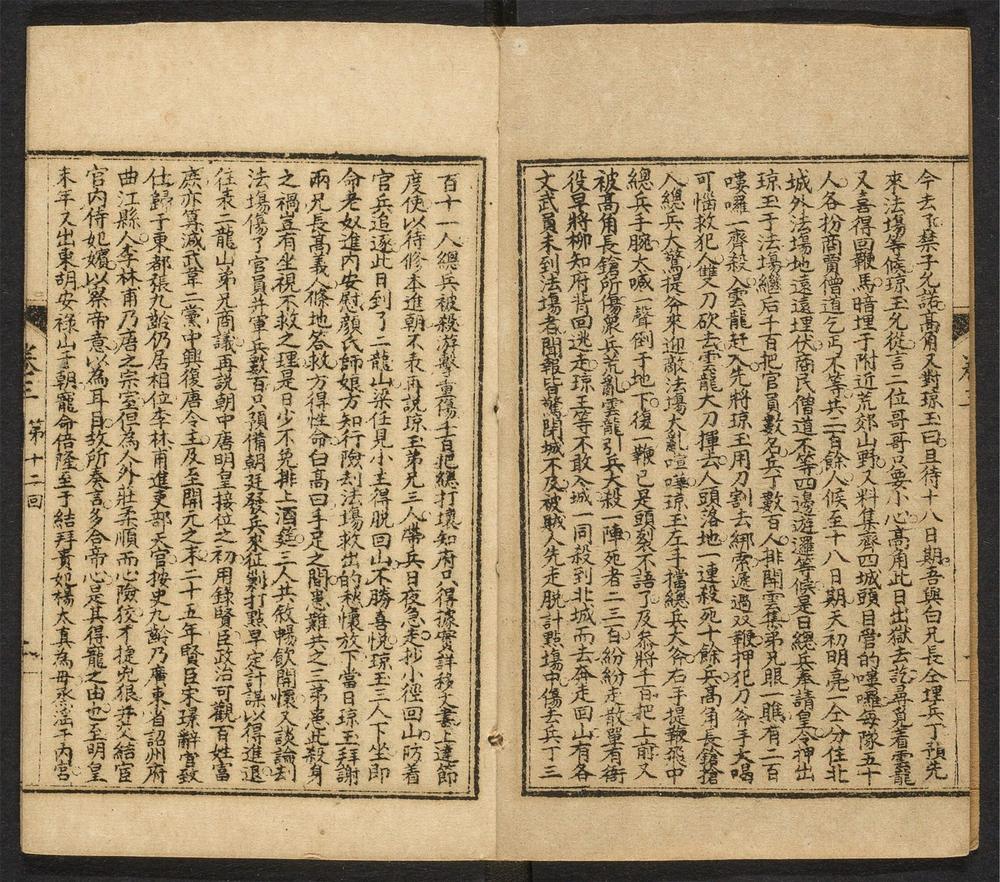 今去下禁子允諾高角又對琼玉曰且待十八日期吾與白兄長仝埋兵丁預先
來法塲等候琼玉允從言二位哥哥只要小心高角此日出獄去訖尋見着雲龍
又喜得回鞭馬暗埋于附近荒郊山野又料集齊四城頭目管的嘍囉每隊五十
人各扮商賈僧道乞丐不等共二百餘人候至十八日期天初明亮一仝分住北
城外法塲地遠遠埋伏商民僧道不等四邊遊邏等候是日總兵奉請皇令押出
琼玉于法塲繼后千百把官員數名兵丁數百人排開雲龍弟兄眼一瞧有二百
嘍囉一齊殺入雲龍赶入先將琼玉用刀割去綁索遞過双鞭押犯刀斧手大喝
可惱救犯人雙刀砍去雲龍大刀揮去人頭落地一連殺死十餘兵高角長鎗搶
入總兵大驚提斧來迎敵法塲大亂喧嘩琼玉左手擋總兵大斧右手提鞭飛中
總兵手腕大喊一聲倒于地下復一鞭已是頭裂不語了及叅將千百把上前又
被高角長鎗所傷衆兵荒亂雲龍引兵大殺一陣死者二三百紛紛走散單有衙
役早將柳知府背回逃走琼玉等不敢入城一同殺到北城而去奔走回山有各
文武員未到法塲者聞報皆驚閉城不及被賊人先走脫計點塲中傷去兵丁三
百十一人總兵被殺游擊重傷千百把總打壞知府只得據實詳移文書上達節
度使以待修本進朝不表再說琼玉弟兄三人帶兵日夜急走抄小徑回山防着
官兵追逐此日到了二龍山梁任見小主得脫回山不勝喜悅琼玉三人下坐即
命老奴進內安慰顏氏師娘方知行險刦法塲救出的秋懷放下當日琼玉拜謝
兩兄長高義人倏地答救方得性命白高曰手足之間患難共之三弟罹此殺身
之禍豈有坐視不救之理是日少不免排上酒筵三人共敘暢飲開懷又談論刦
法塲傷了官員并軍兵數百只預備朝廷發兵來征剿打點早定計謀以得進退
往表二龍山弟兄商議再說朝中唐明皇接位之初用錄賢臣政治可觀百姓富
庶亦算減武韋二黨中興復唐令主及至開元之末二十五年賢臣宋璟辭官致
仕歸于東都張九齡仍居相位李林甫進吏部天官按史九齡乃廣東省韶州府
曲江縣人李林甫乃唐之宗室但為人外莊柔順而心險狡不捷兇狠并交結宦
官內侍妃嬪以察帝意以為耳目故所奏言多合帝心是其得寵之由也至明皇
末年又出東胡安祿山于朝寵命倍隆至于結拜貴妃楊太真為母烝淫于內宮
卷三
第十二回